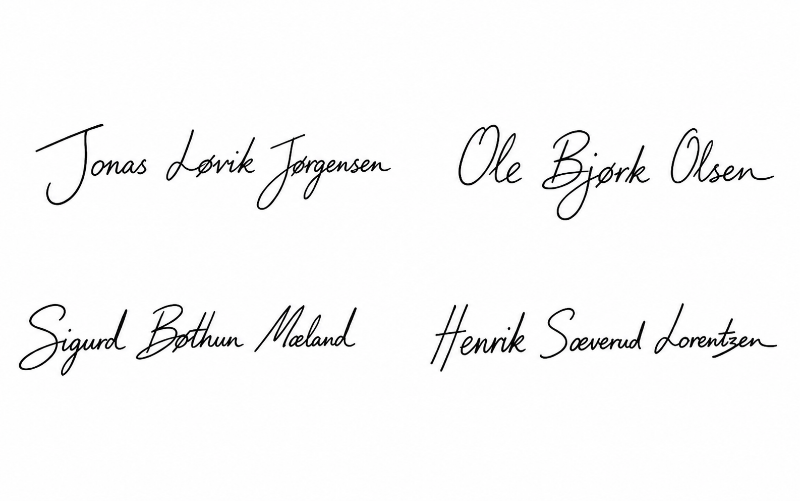 Jonas Løvik Jørgensen
Ole Bjørk Olsen
Sigurd Bøthun Mæland
Henrik Sæverud Lorentzen